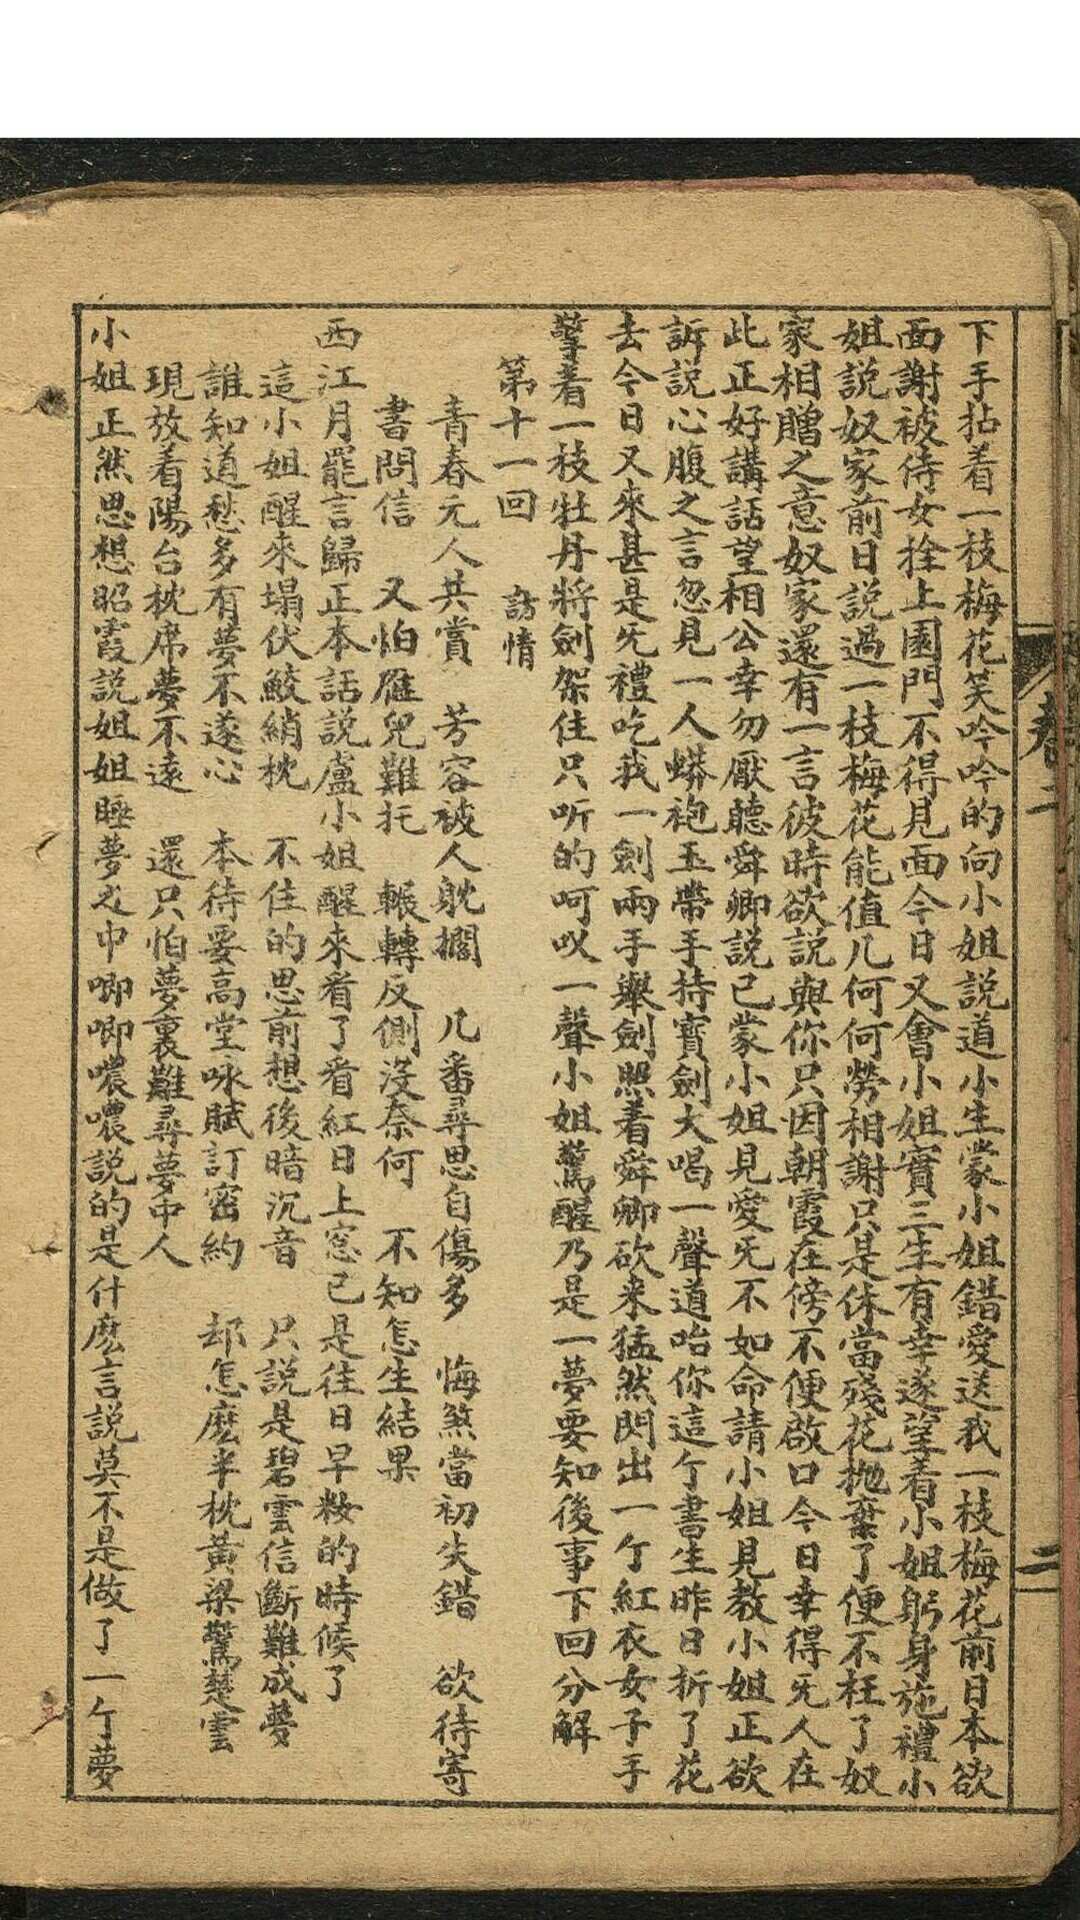 卷二
二
下手拈着一枝梅花笑吟吟的向小姐説道小生蒙小姐錯愛送我一枝梅花前日本欲
面謝被侍女拴上園門不得見面今日又會小姐實三生有幸遂望着小姐躬身施禮小
姐説奴家前日説過一枝梅花能值几何何勞相謝只是休當殘花拋棄了便不枉了奴
家相贈之意奴家還有一言彼時欲説與你只因朝霞在傍不便啟口今日幸得旡人在
此正好講話望相公幸勿厭聽舜卿説已蒙小姐見愛旡不如命請小姐見教小姐正欲
訴説心腹之言忽見一人蟒袍玉帶手持寳劍大喝一聲道咍你這亇書生昨日折了花
去今日又來甚是旡禮吃我一劍兩手舉劍照着舜卿砍来猛然閃出一亇紅衣女子手
擎着一枝牡丹將劍架住只听的呵叹一聲小姐驚醒乃是一夢要知後事下回分解
第十一回　訪情
青春元人共賞　芳容被人躭擱　几番尋思自傷多　悔煞當初失錯　欲待寄
書問信　又怕雁兒難托　輾轉反側沒奈何　不知怎生結果
西江月罷言歸正本話説盧小姐醒來看了看紅日上窓已是往日早粧的時候了
這小姐醒來塌伏鮫綃枕　不住的思前想後暗沉音　只説是碧雲信斷難成夢
誰知道愁多有夢不遂心　本待要高堂咏賦訂密約　却怎麽半枕黃粱驚楚雲
現放着陽台枕席夢不遠　還只怕夢裏難尋夢中人
小姐正然思想昭霞説姐姐睡夢之中唧唧噥噥説的是什麽言説莫不是做了一亇夢